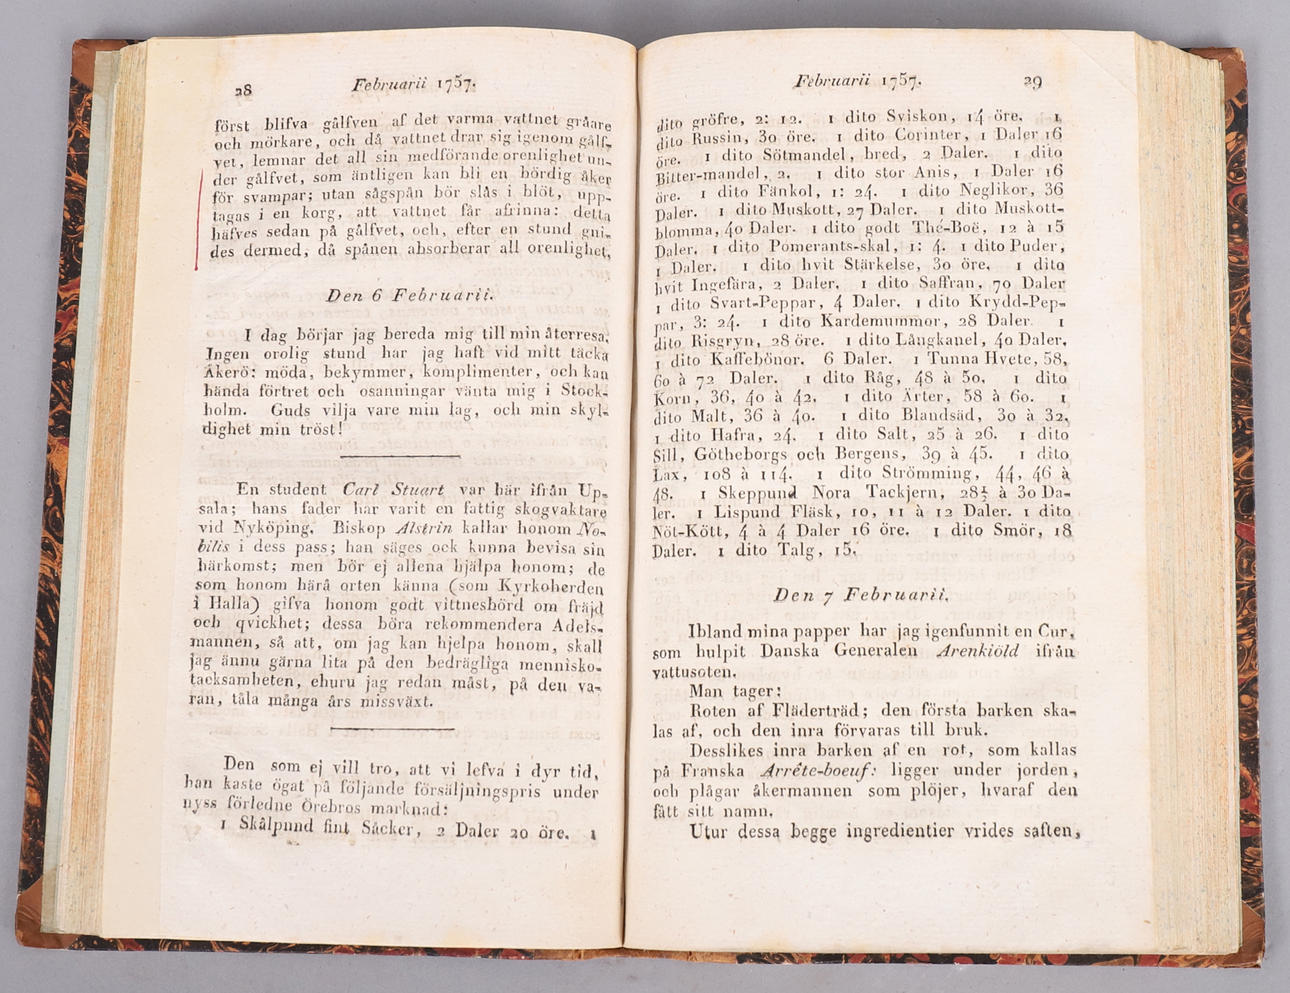 28
Februarii 1757.
först blifva gålfven af det varma vattnet gråare
och mörkare, och då vattnet drar sig igenom gålf-
vet, lemnar det all sin medförande orenlighet un-
der gålfvet, som äntligen kan bli en bördig åker
för svampar; utan sågspån bör slås i blöt, upp-
tagas i en korg, att vattnet får afrinna: detta
häfves sedan på gålfvet, och, efter en stund gni-
des dermed, då spånen absorberar all orenlighet.
Den 6 Februarii.
I dag börjar jag bereda mig till min återresa.
Ingen orolig stund har jag haft vid mitt täcka
Åkerö: möda, bekymmer, komplimenter, och kan
hända förtret och osanningar vänta mig i Stock-
holm. Guds vilja vare min lag, och min skyl-
dighet min tröst!
En student Carl Stuart var här ifrån Up-
sala; hans fader har varit en fattig skogvaktare
vid Nyköping. Biskop Alstrin kallar honom No-
bilis i dess pass; han säges ock kunna bevisa sin
härkomst; men bör ej allena hjälpa honom; de
som honom härå orten känna (som Kyrkoherden
i Halla) gifva honom godt vittnesbörd om fräjd
och qvickhet; dessa böra rekommendera Adels-
mannen, så att, om jag kan hjelpa honom, skall
jag ännu gärna lita på den bedrägliga mennisko-
tacksamheten, ehuru jag redan måst, på den va-
ran, tåla många års missväxt.
Den som ej vill tro, att vi lefva i dyr tid,
han kaste ögat på följande försäljningspris under
nyss förledne Örebros marknad:
1 Skålpund fint Såcker, 2 Daler 20 öre. 1
Februarii 1757.
29
dito gröfre, 2: 12. 1 dito Sviskon, 14 öre. 1
dito Russin, 30 öre. 1 dito Corinter, 1 Daler 16
öre. 1 dito Sötmandel, bred, 2 Daler. 1 dito
Bitter-mandel, 2. 1 dito stor Anis, 1 Daler 16
öre. 1 dito Fänkol, 1: 24. 1 dito Neglikor, 36
Daler. 1 dito Muskott, 27 Daler. 1 dito Muskott-
blomma, 40 Daler. 1 dito godt Thé-Boë, 12 à 15
Daler. 1 dito Pomerants-skal, 1: 4. 1 dito Puder,
1 Daler. 1 dito hvit Stärkelse, 30 öre. 1 dito
hvit Ingefära, 2 Daler. 1 dito Saffran, 70 Daler
1 dito Svart-Peppar, 4 Daler. 1 dito Krydd-Pep-
par, 3: 24. 1 dito Kardemummor, 28 Daler. 1
dito Risgryn, 28 öre. 1 dito Långkanel, 40 Daler.
1 dito Kaffebönor. 6 Daler. 1 Tunna Hvete, 58,
60 à 72 Daler. 1 dito Råg, 48 à 50. 1 dito
Korn, 36, 40 à 42. 1 dito Ärter, 58 à 60. 1
dito Malt, 36 à 40. 1 dito Blandsäd, 30 à 32.
1 dito Hafra, 24. 1 dito Salt, 25 à 26. 1 dito
Sill, Götheborgs och Bergens, 39 à 45. 1 dito
Lax, 108 à 114. 1 dito Strömming, 44, 46 à
48. 1 Skeppund Nora Tackjern, 28½ à 30 Da-
ler. 1 Lispund Fläsk, 10, 11 à 12 Daler. 1 dito
Nöt-Kött, 4 à 4 Daler 16 öre. 1 dito Smör, 18
Daler. 1 dito Talg, 15.
Den 7 Februarii.
Ibland mina papper har jag igenfunnit en Cur,
som hulpit Danska Generalen Arenkiöld ifrån
vattusoten.
Man tager:
Roten af Fläderträd; den första barken ska-
las af, och den inra förvaras till bruk.
Desslikes inra barken af en rot, som kallas
på Franska Arrête-boeuf: ligger under jorden,
och plågar åkermannen som plöjer, hvaraf den
fått sitt namn.
Utur dessa begge ingredientier vrides saften,